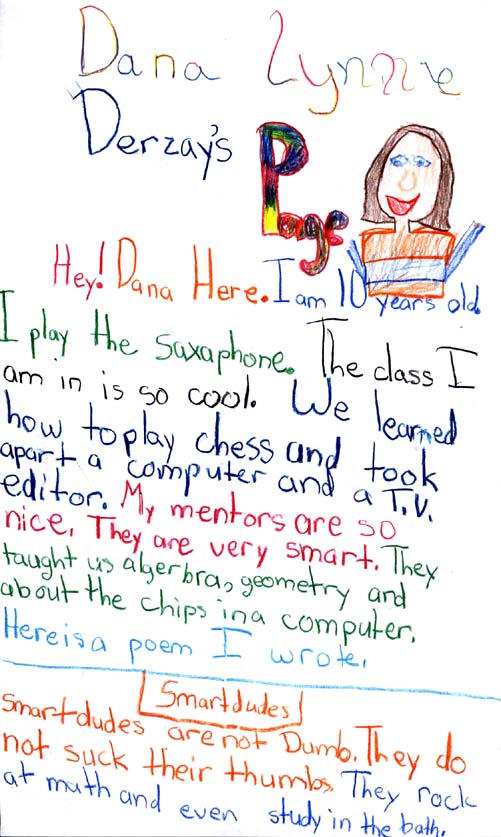 Dana Lynne
Derzay's Page
Hey! Dana Here. I am 10 years old.
I play the saxaphone. The class I
am in is so cool. We learned
how to play chess and took
apart a computer and a T.V.
editor. My mentors are so
nice. They are very smart. They
taught us algerbra, geometry and
about the chips in a computer.
Here is a poem I wrote.
Smartdudes
Smartdudes are not Dumb. They do
not suck their thumbs. They rock
at math and even study in the bath.